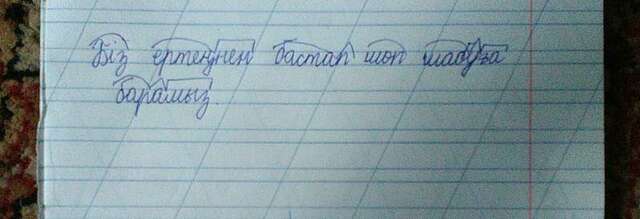 Біз ертеңнен бастап шөп шабуға
барамыз.